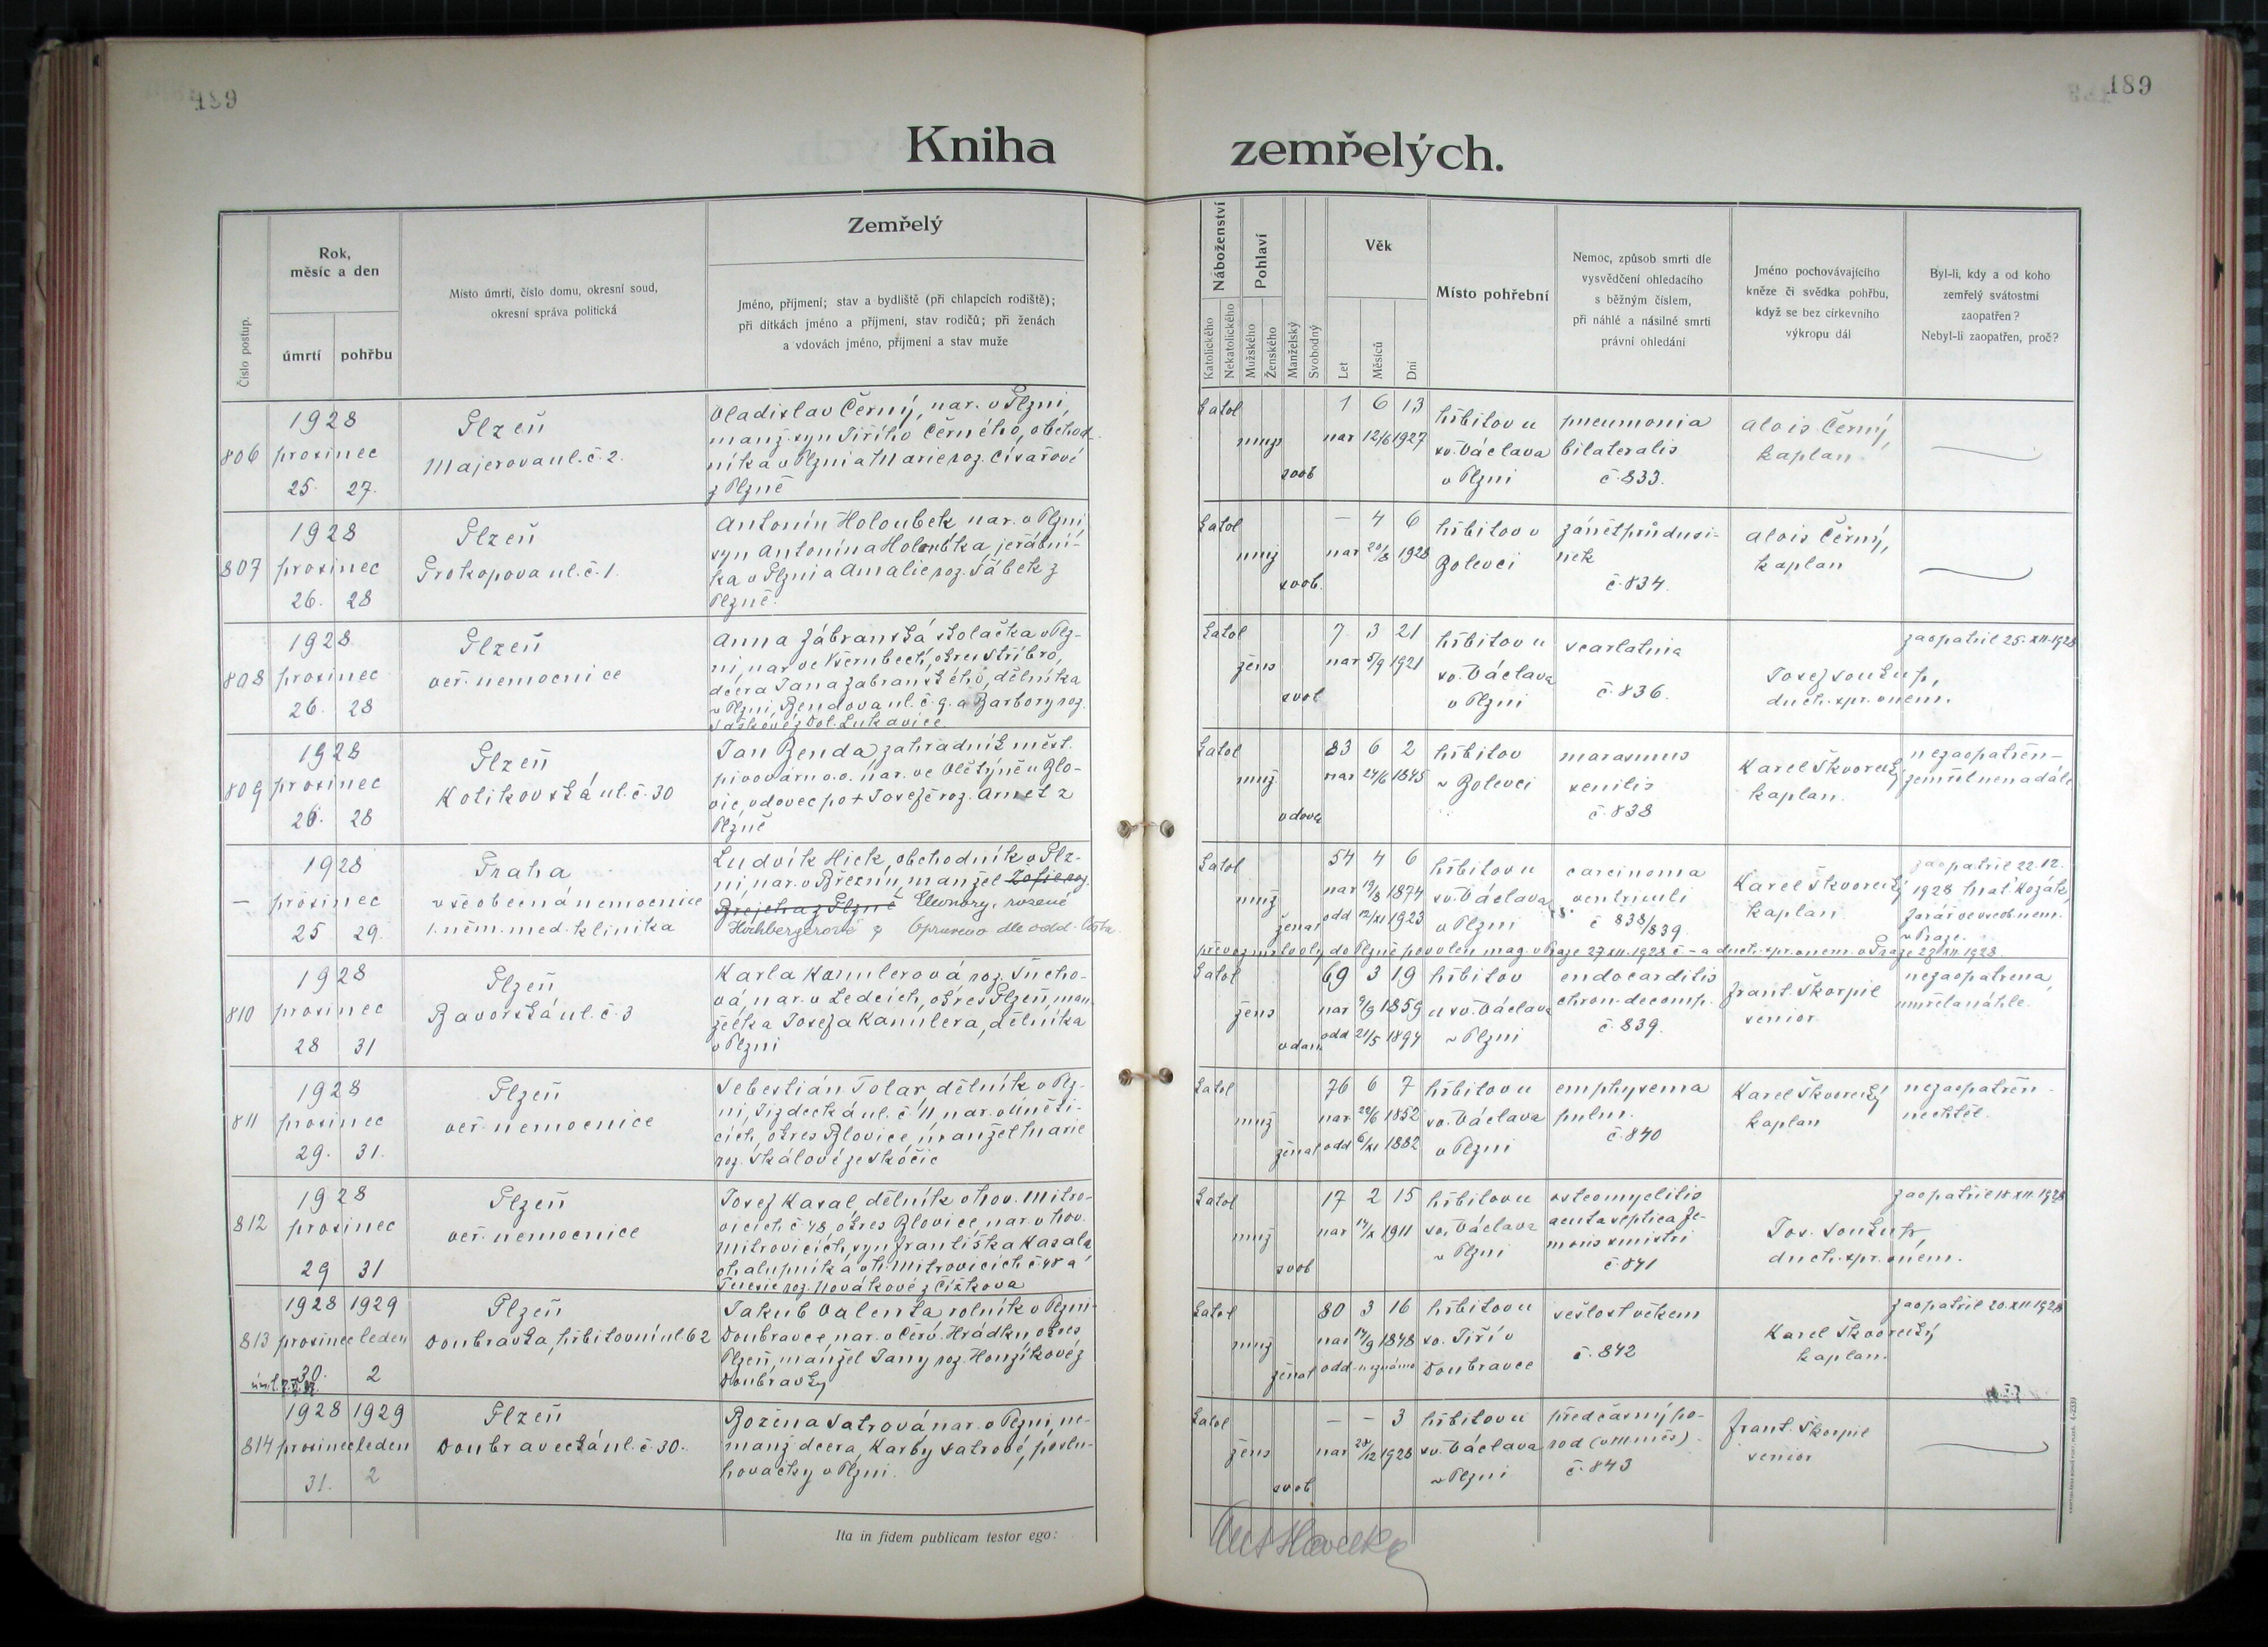 189
189
Kniha zemřelých.
Číslo postup.
Rok,
měsíc a den
úmrtí
pohřbu
Místo úmrtí, číslo domu, okresní soud,
okresní správa politická
Zemřelý
Jméno, příjmení; stav a bydliště (při chlapcích rodiště);
při dítkách jméno a příjmení, stav rodičů; při ženách
a vdovách jméno, příjmení a stav muže
Náboženství
Katolického
Nekatolického
Pohlaví
Mužského
Ženského
Manželský
Svobodný
Věk
Let
Měsíců
Dní
Místo pohřební
Nemoc, způsob smrti dle
vysvědčení ohledacího
s běžným číslem,
při náhlé a násilné smrti
právní ohledání
Jméno pochovávajícího
kněze či svědka pohřbu,
když se bez církevního
výkropu dál
Byl-li, kdy a od koho
zemřelý svátostmi
zaopatřen?
Nebyl-li zaopatřen, proč?
806
1928
prosinec
25. 27.
Plzeň
Majerova ul. č. 2.
Vladislav Černý, nar. v Plzni,
manž. syn Jiřího Černého, obchod-
níka v Plzni a Marie roz. Císařové
z Plzně
katol
muž
svob
1 6 13
nar 12/6 1927
hřbitov u
sv. Václava
v Plzni
pneumonia
bilateralis
č. 833.
Alois Černý,
kaplan
807
1928
prosinec
26. 28
Plzeň
Prokopova ul. č. 1.
Antonín Holoubek nar. v Plzni,
syn Antonína Holoubka, jeřábní-
ka v Plzni a Amalie roz. Sábek z
Plzně.
katol
muž
svob.
— 4 6
nar 20/8 1928
hřbitov v
Bolevci
zánět průduši-
nek
č. 834.
Alois Černý,
kaplan
808
1928
prosinec
26. 28
Plzeň
veř. nemocnice
Anna Zábranská školačka v Plz-
ni, nar. ve Všerubech, okres Stříbro,
dcera Jana Zabranského, dělníka
v Plzni, Bendova ul. č. 9. a Barbory roz.
Vaškové z Dol. Lukavice
katol
žens
svob
7 3 21
nar 5/9 1921
hřbitov u
sv. Václava
v Plzni
scarlatina
č. 836.
zaopatřil 25. XII. 1928
Josef Soukup,
duch. spr. v nem.
809
1928
prosinec
26. 28
Plzeň
Kotikovská ul. č. 30
Jan Benda, zahradník měšť.
pivovaru v. v. nar. ve Vlčtýně u Blo-
vic, vdovec po + Josefě roz. Arnet z
Plzně
katol
muž
vdovec
83 6 2
nar 24/6 1845
hřbitov
v Bolevci
marasmus
senilis
č. 838
Karel Škvorecký
kaplan.
nezaopatřen —
zemřel nenadále
—
1928
prosinec
25 29.
Praha
všeobecná nemocnice
1. něm. med. klinika
Ludvík Hick, obchodník v Plz-
ni, nar. v Březnu, manžel Žofie roz.
Brejcha z Plzně Eleonory, rozené
Hochbergerové Opraveno dle odd. listu
katol
muž
ženat
54 4 6
nar 19/8 1874
odd 12/XI 1923
hřbitov u
sv. Václava
v Plzni
carcinoma
ventriculi
č 838/839.
Karel Škvorecký
kaplan
zaopatřil 22. 12.
1928 Mat. Kozák,
farář ve všeob. nem.
v Praze.
převoz mrtvoly do Plzně povolen mag. v Praze 27. XII. 1928 č — a duch. spr. v nem. v Praze 27. XII. 1928
810
1928
prosinec
28 31
Plzeň
Bavorská ul. č. 3
Karla Kamlerová roz. Sucho-
vá, nar. v Ledcích, okres Plzeň, man-
želka Josefa Kamlera, dělníka
v Plzni
katol
žens
vdan
69 3 19
nar 9/9 1859
odd 21/5 1894
hřbitov
u sv. Václava
v Plzni
endocarditis
chron. decomp.
č. 839.
Frant. Škorpil
senior
nezaopatřena,
umřela náhle.
811
1928
prosinec
29. 31.
Plzeň
veř. nemocnice
Sebestián Tolar, dělník v Plz-
ni, Jízdecká ul. č 11 nar. v Úněti-
cích, okres Blovice, manžel Marie
roz. Skálové ze Skočic
katol
muž
ženat
76 6 7
nar 22/6 1852
odd 6/XI 1882
hřbitov u
sv. Václava
v Plzni
emphysema
pulm.
č. 840
Karel Škvorecký
kaplan
nezaopatřen —
nechtěl.
812
1928
prosinec
29 31
Plzeň
veř. nemocnice
Josef Kasal, dělník v hov. Mitro-
vicích č. 48, okres Blovice, nar. v hov.
Mitrovicích, syn Františka Kasala
chalupníka v h. Mitrovicích č. 48 a
Terezie roz. Novákové z Čížkova
katol
muž
svob
17 2 15
nar 14/X 1911
hřbitov u
sv. Václava
v Plzni
osteomyelitis
acuta septica fe-
moris sinistri
č. 841
zaopatřil 18. XII. 1928
Jos. Soukup,
duch. spr. v nem.
813
1928 1929
prosinec leden
30. 2
Plzeň
Doubravka, hřbitovní ul. 62
Jakub Valenta, rolník v Plzni-
Doubravce, nar. v Červ. Hrádku okres
Plzeň, manžel Jany roz. Honzíkové z
Doubravky
katol
muž
ženat
80 3 16
nar 14/9 1848
odd. neznámo
hřbitov u
sv. Jiří v
Doubravce
sešlost věkem
č. 842
zaopatřil 20. XII. 1928
Karel Škvorecký
kaplan.
814
1928 1929
prosinec leden
31. 2
Plzeň
Doubravecká ul. č. 30.
Božena Satrová nar. v Plzni, ne-
manž. dcera, Karly Satrové, poslu-
hovačky v Plzni.
katol
žens
svob
— — 3
nar 28/12 1928
hřbitov u
sv. Václava
v Plzni
předčasný po-
rod (VIII měs)
č. 843
Frant. Škorpil
senior
Ita in fidem publicam testor ego: